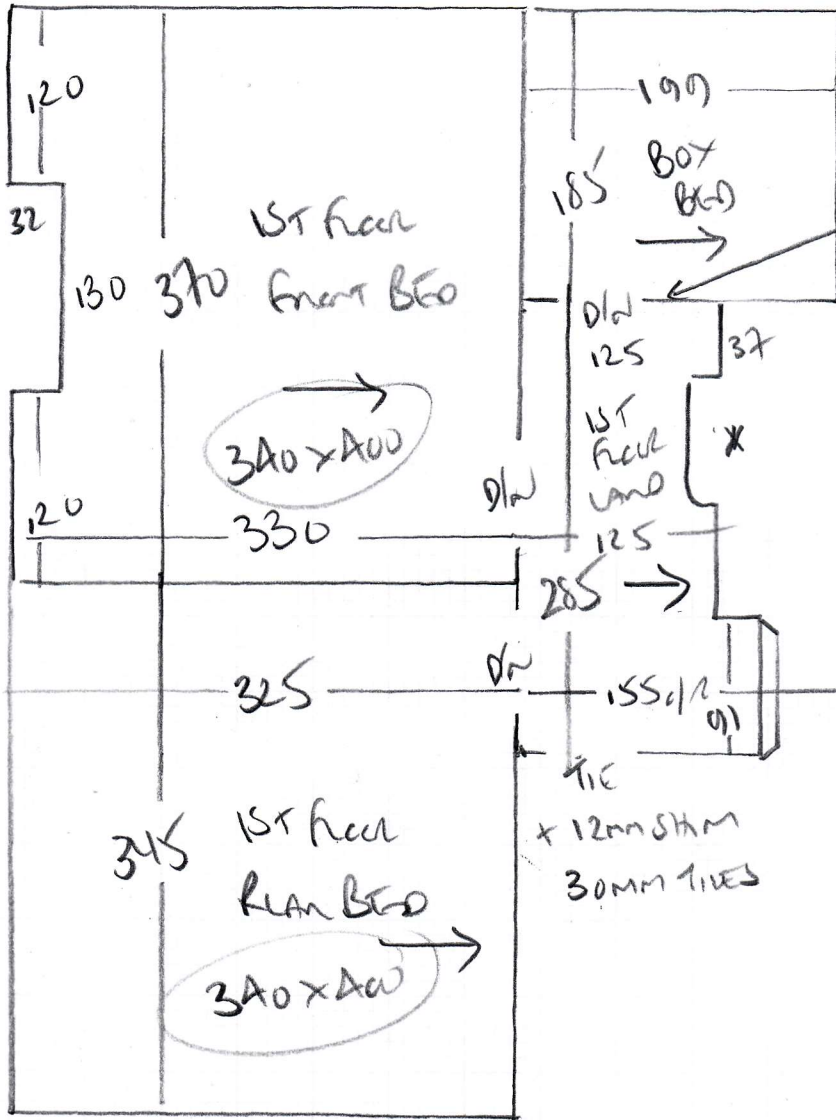 120
199
185
BOX
BED
32
130
370
1ST FLOOR
FRONT BED
D/W
125
37
340 x 400
1ST
FLOOR
LAND
*
D/W
120
330
125
285
325
D/W
155
91
TIE
+ 12mm SHIM
30MM TILES
345
1ST FLOOR
REAR BED
340 x 400